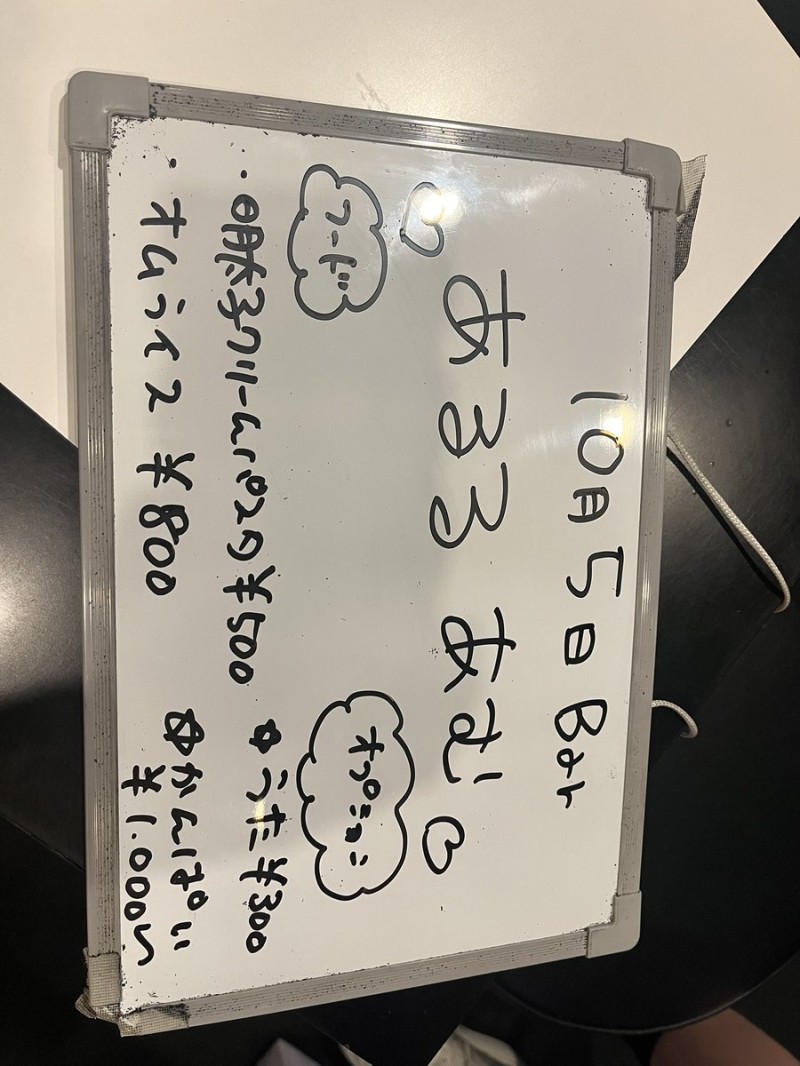 10月5日 Bar
あるる あむ
フード
・明太子クリームぱスタ ¥500
・オムライス ¥800
オプション
☆うた ¥300
☆かんぱい
¥1.000~